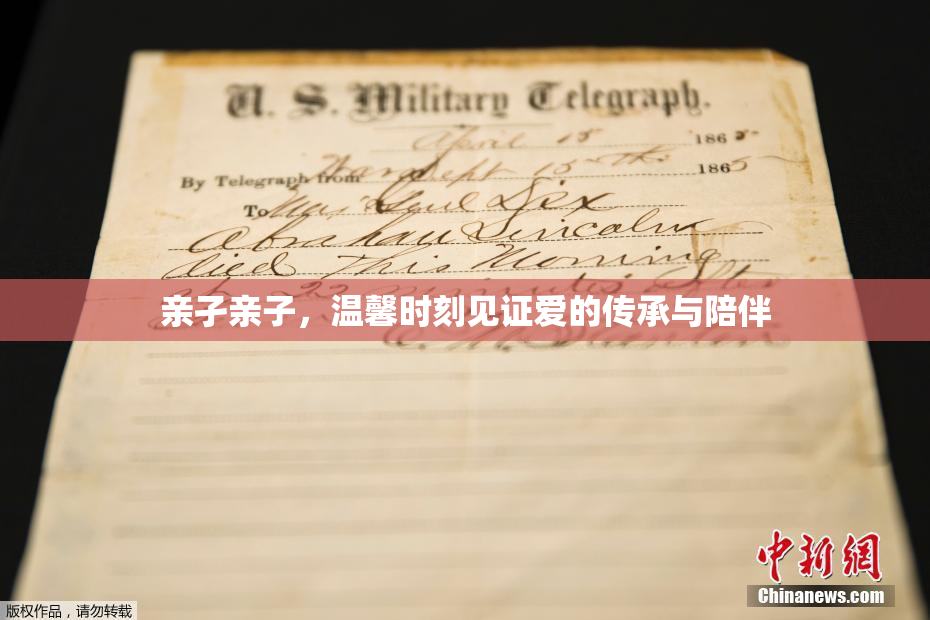 U. S. Military Telegraph.
April 15 1865
By Telegraph from War Dept 15th 1865
To Maj Genl Dix
Abraham Lincoln
died This Morning
at 22 minutes after
亲子亲子，温馨时刻见证爱的传承与陪伴
E. M. Stanton
中新网
Chinanews.com
版权作品，请勿转载